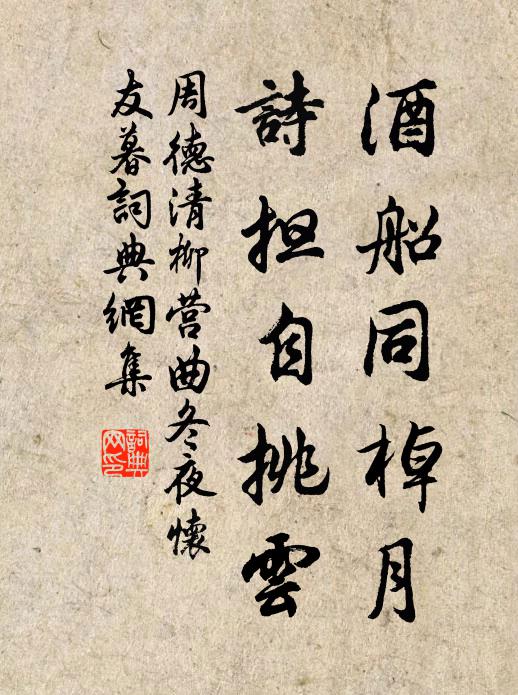 酒船同棹月
詩担自挑雲
周德清柳营曲冬夜懷
友暮詞典網集
詞典
网印